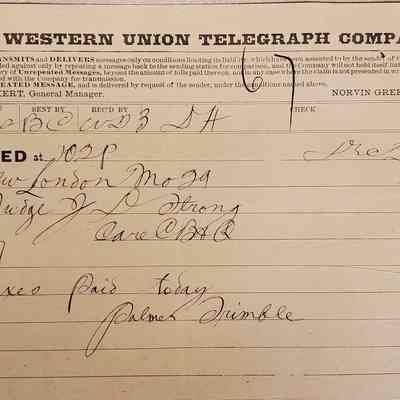 WESTERN UNION TELEGRAPH COMPA
ANSMITS and DELIVERS messages only on conditions limiting its liability, which have been assented to by the sender of
ded against only by repeating a message back to the sending station for comparison, and the Company will not hold itself
ery of Unrepeated Messages, beyond the amount of tolls paid thereon, nor in any case where the claim is not presented in wr
ed with the Company for transmission.
EATED MESSAGE, and is delivered by request of the sender, under the conditions named above.
KERT, General Manager.
NORVIN GREE
67
SENT BY
REC'D BY
CHECK
ED at
New London Mo 29
Judge J L Strong
Care CB&Q
xes paid today
Palmer Trimble